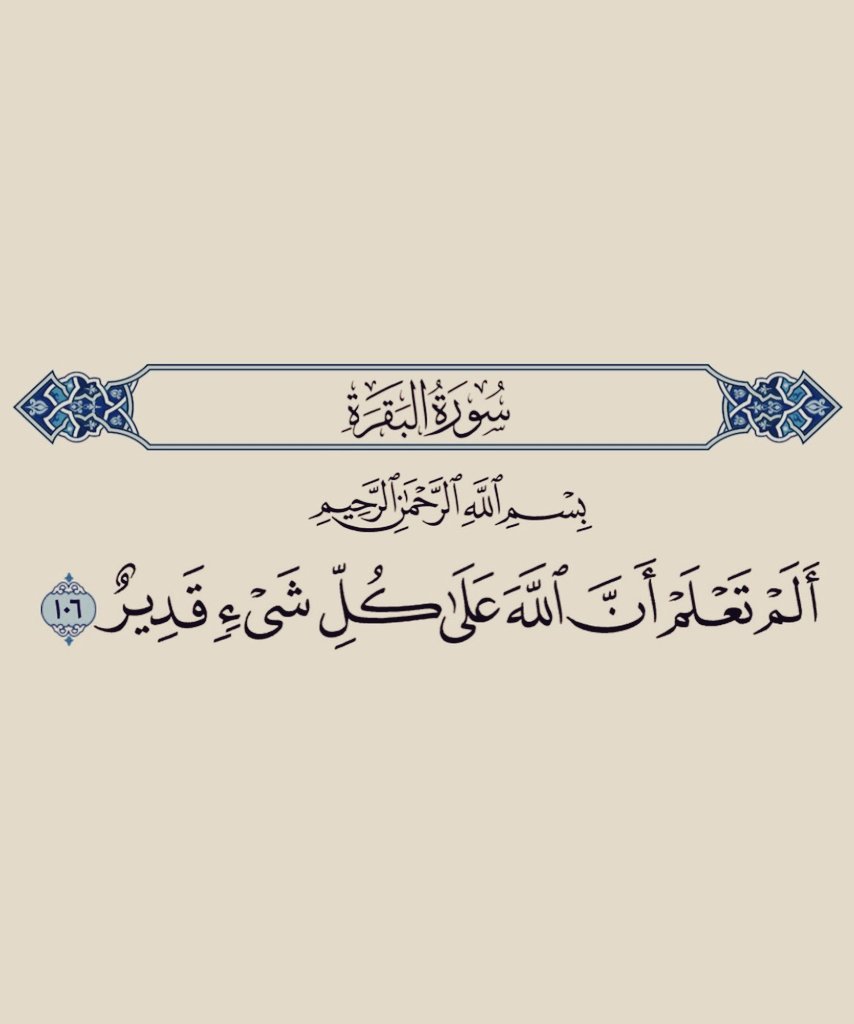 سُورَةُ البَقَرَةِ
بِسْمِ ٱللَّهِ ٱلرَّحْمَٰنِ ٱلرَّحِيمِ
أَلَمْ تَعْلَمْ أَنَّ ٱللَّهَ عَلَىٰ كُلِّ شَىْءٍ قَدِيرٌ ١٠٦